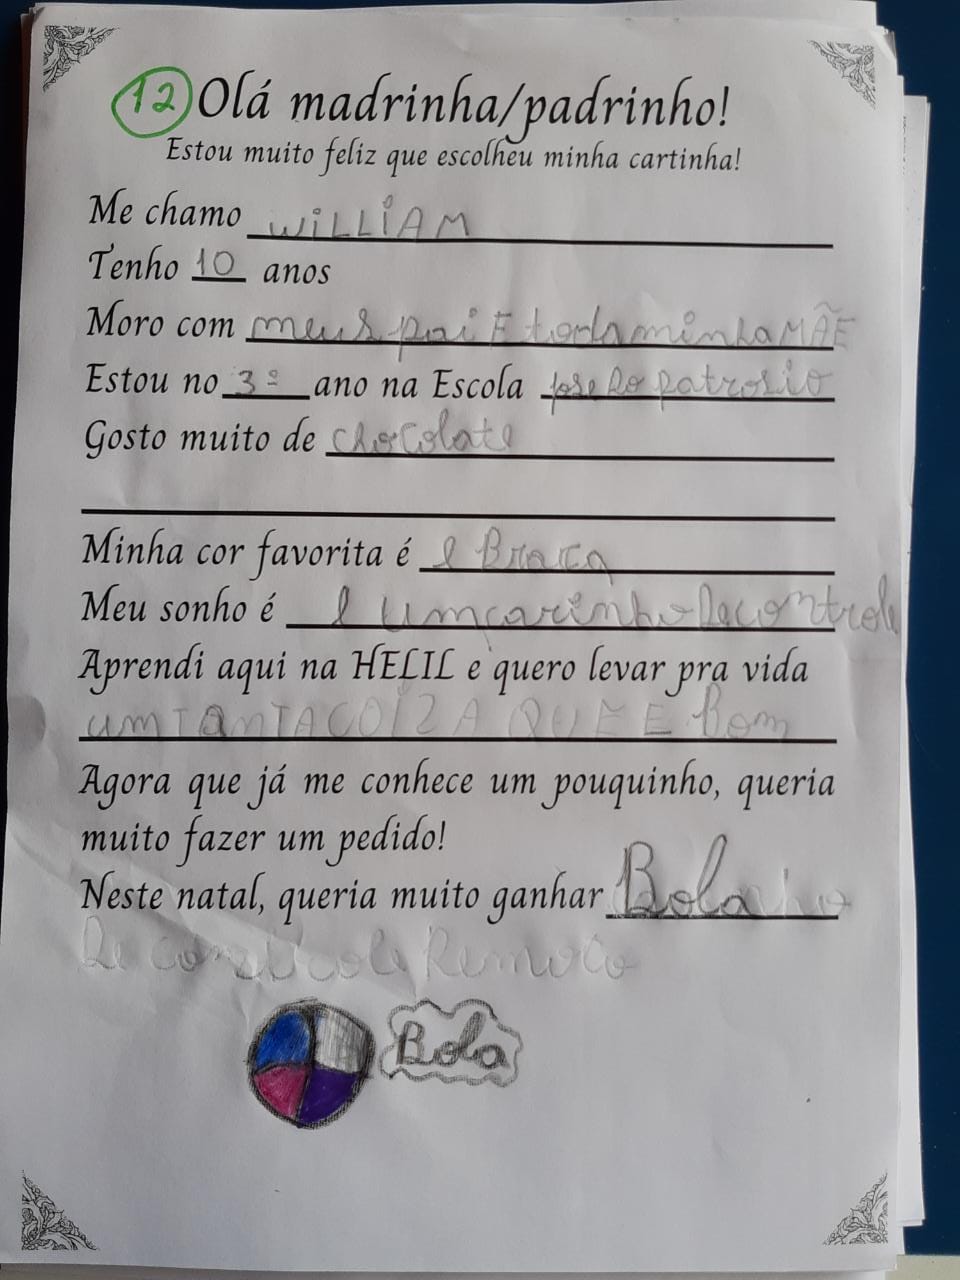 12 Olá madrinha/padrinho!
Estou muito feliz que escolheu minha cartinha!
Me chamo WiLLiAM
Tenho 10 anos
Moro com meus pai E toda minha MÃE
Estou no 3º ano na Escola jose do patrosio
Gosto muito de chocolate
Minha cor favorita é é Braca
Meu sonho é é um carinho de controle
Aprendi aqui na HELIL e quero levar pra vida
um TANTA COIZA QUE E Bom
Agora que já me conhece um pouquinho, queria
muito fazer um pedido!
Neste natal, queria muito ganhar Bola
De Remoto
Bola